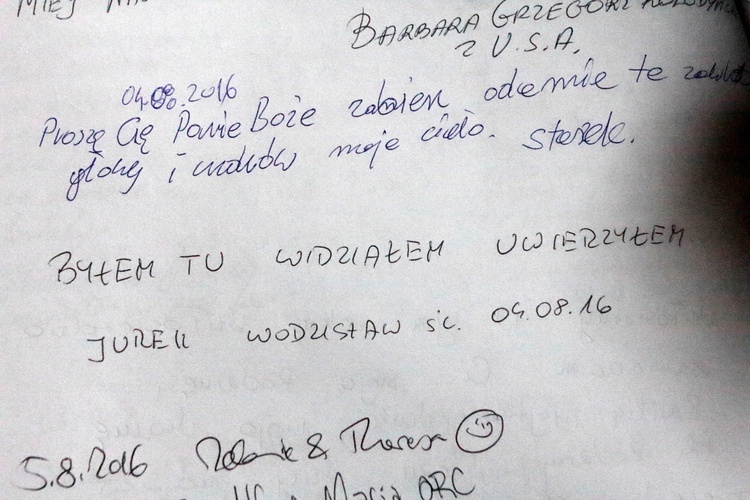 MIEJ
BARBARA GRZEGORZ
Z U.S.A.
04.08.2016
Proszę Cię Panie Boże zabierz odemnie te
głowy i uzdrów moje ciało. Staszek.
BYŁEM TU WIDZIAŁEM UWIERZYŁEM
JUREK WODZISŁAW ŚL. 04.08.16
5.8.2016 & Theresa
ARC